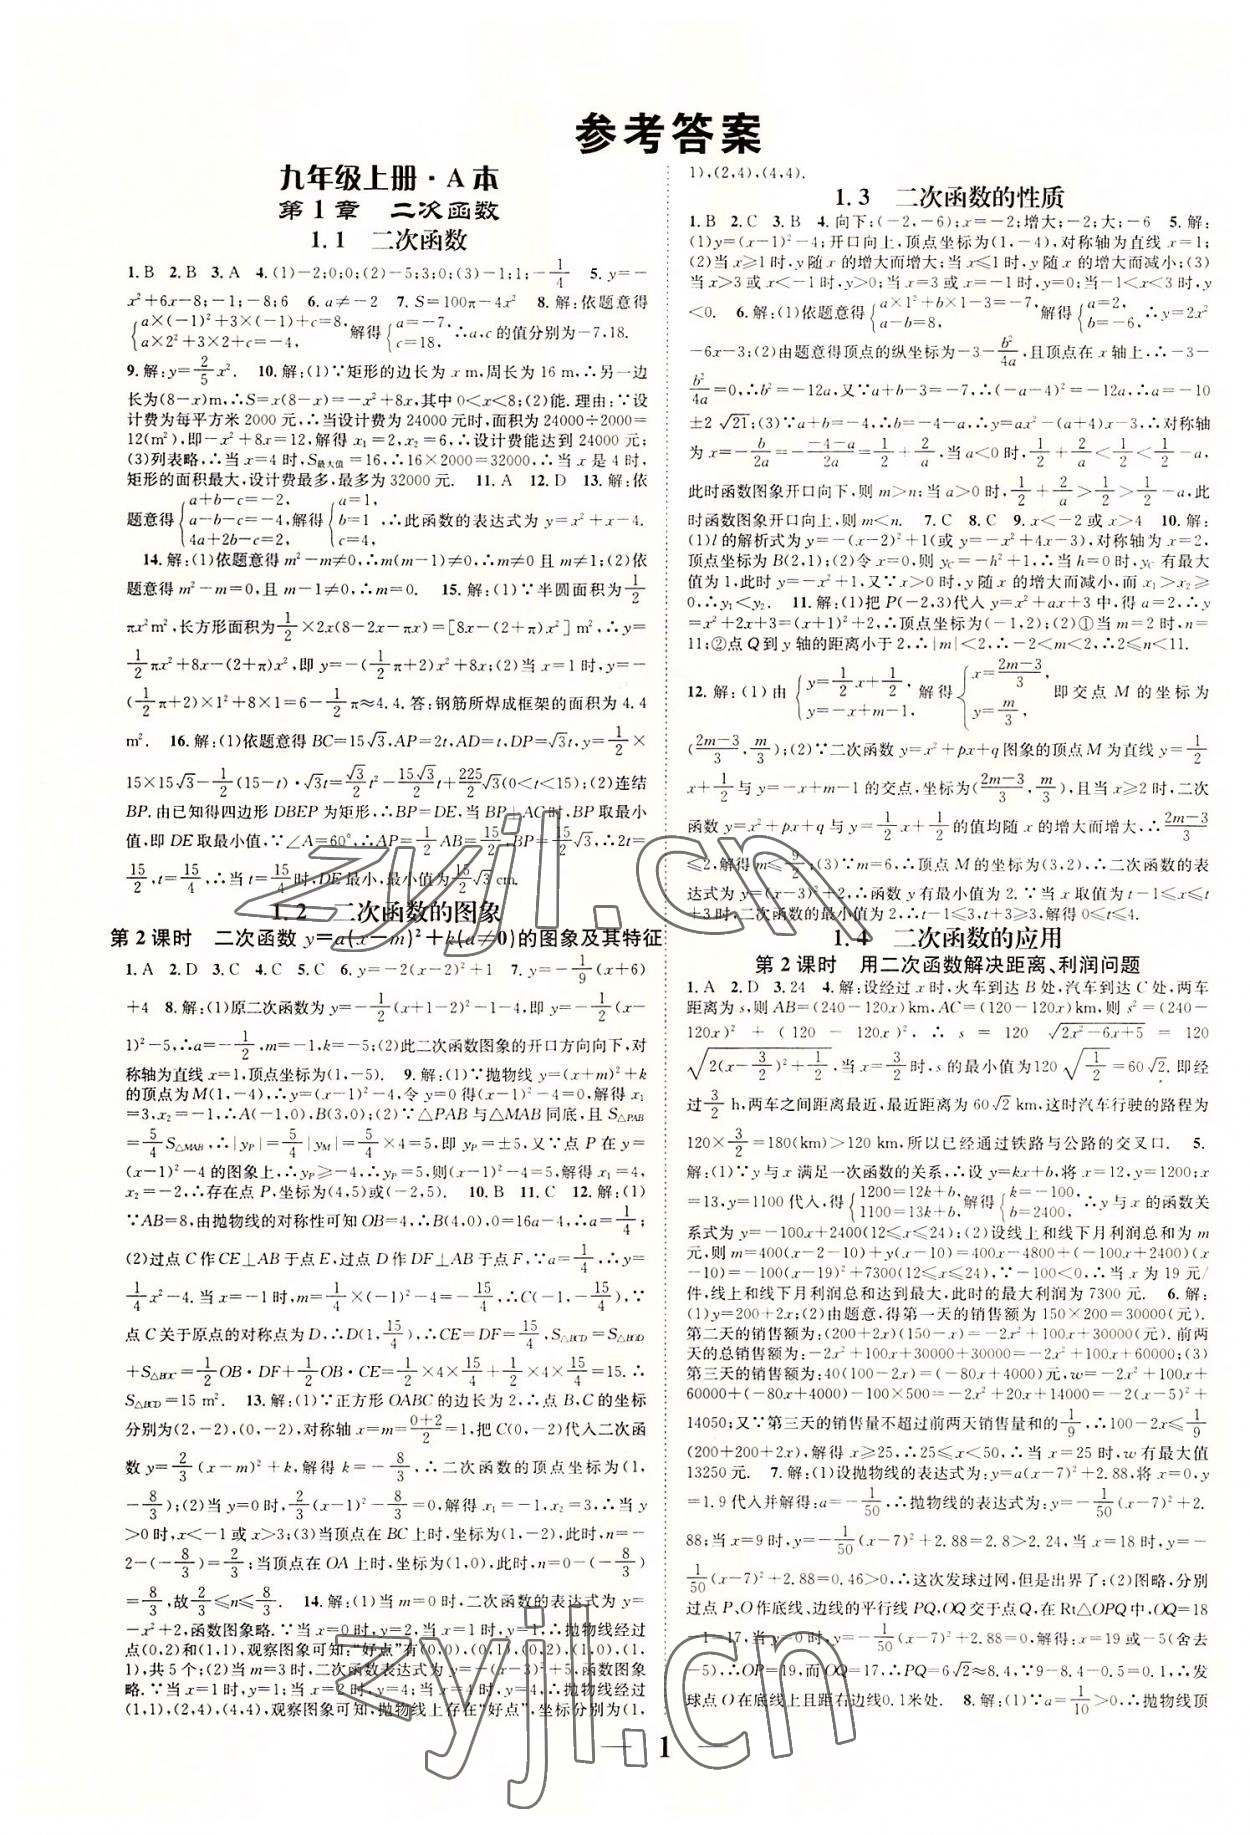 参考答案
九年级上册·A本
第1章 二次函数
1.1 二次函数
1.B 2.B 3.A 4.(1)-2;0;0;(2)-5;3;0;(3)-1;1;-1/4 5.y=-
x²+6x-8;-1;-8;6 6.a≠-2 7.S=100π-4x² 8.解:依题意得
{a×(-1)²+3×(-1)+c=8, a×2²+3×2+c=-4, 解得{a=-7, c=18, ∴a,c的值分别为-7,18.
9.解:y=2/5x². 10.解:(1)∵矩形的边长为x m,周长为16 m,∴另一边
长为(8-x)m,∴S=x(8-x)=-x²+8x,其中0<x<8;(2)能.理由:∵设
计费为每平方米2000元,∴当设计费为24000元时,面积为24000÷2000=
12(m²),即-x²+8x=12,解得x₁=2,x₂=6,∴设计费能达到24000元;
(3)列表略,∴当x=4时,S最大值=16,∴16×2000=32000,∴当x是4时,
矩形的面积最大,设计费最多,最多为32000元. 11.A 12.D 13.解:依
题意得{a+b-c=-2, a-b-c=-4, 4a+2b-c=2, 解得{a=1 b=1 c=4 ∴此函数的表达式为y=x²+x-4.
14.解:(1)依题意得m²-m≠0,∴m(m-1)≠0,∴m≠0且m≠1;(2)依
题意得m²-m=0,且m-1≠0,∴m=0. 15.解:(1)∵半圆面积为1/2
πx²m²,长方形面积为1/2×2x(8-2x-πx)=[8x-(2+π)x²]m²,∴y=
1/2πx²+8x-(2+π)x²,即y=-(1/2π+2)x²+8x;(2)当x=1时,y=-
(1/2π+2)×1²+8×1=6-1/2π≈4.4.答:钢筋所焊成框架的面积为4.4
m². 16.解:(1)依题意得BC=15√3,AP=2t,AD=t,DP=√3t,y=1/2×
15×15√3-1/2(15-t)·√3t=√3/2t²-15√3/2t+225/2√3(0<t<15);(2)连结
BP.由已知得四边形DBEP为矩形,∴BP=DE,当BP⊥AC时,BP取最小
值,即DE取最小值,∵∠A=60°,∴AP=1/2AB=15/2,BP=15/2√3,∴2t=
15/2,t=15/4,∴当t=15/4时,DE最小,最小值为15/2√3 cm.
1.2 二次函数的图象
第2课时 二次函数y=a(x-m)²+k(a≠0)的图象及其特征
1.A 2.D 3.C 4.C 5.C 6.y=-2(x-2)²+1 7.y=-1/9(x+6)
+4 8.解:(1)原二次函数为y=-1/2(x+1-2)²-1-4,即y=-1/2(x-
1)²-5,∴a=-1/2,m=-1,k=-5;(2)此二次函数图象的开口方向向下,对
称轴为直线x=1,顶点坐标为(1,-5). 9.解:(1)∵抛物线y=(x+m)²+k
的顶点为M(1,-4),∴y=(x-1)²-4,令y=0得(x-1)²-4=0,解得x₁
=3,x₂=-1,∴A(-1,0),B(3,0);(2)∵△PAB与△MAB同底,且S△PAB
=5/4S△MAB,∴|yP|=5/4|yM|=5/4×4=5,即yP=±5,又∵点P在y=
(x-1)²-4的图象上,∴yP≥-4,∴yP=5,则(x-1)²-4=5,解得x₁=4,
x₂=-2,∴存在点P,坐标为(4,5)或(-2,5). 10.B 11.C 12.解:(1)
∵AB=8,由抛物线的对称性可知OB=4,∴B(4,0),0=16a-4,∴a=1/4;
(2)过点C作CE⊥AB于点E,过点D作DF⊥AB于点F,∵a=1/4,∴y=
1/4x²-4.当x=-1时,m=1/4×(-1)²-4=-15/4,∴C(-1,-15/4),∵
点C关于原点的对称点为D,∴D(1,15/4),∴CE=DF=15/4,S△BCD=S△BOD
+S△BOC=1/2OB·DF+1/2OB·CE=1/2×4×15/4+1/2×4×15/4=15.∴
S△BCD=15 m². 13.解:(1)∵正方形OABC的边长为2,∴点B,C的坐标
分别为(2,-2),(0,-2),对称轴x=m=0+2/2=1,把C(0,-2)代入二次函
数y=2/3(x-m)²+k,解得k=-8/3,∴二次函数的顶点坐标为(1,
-8/3);(2)当y=0时,2/3(x-1)²-8/3=0,解得x₁=-1,x₂=3,∴当y
>0时,x<-1或x>3;(3)当顶点在BC上时,坐标为(1,-2),此时,n=-
2-(-8/3)=2/3;当顶点在OA上时,坐标为(1,0),此时,n=0-(-8/3)
=8/3,故2/3≤n≤8/3. 14.解:(1)当m=0时,二次函数的表达式为y=
-x²+2,函数图象略.∵当x=0时,y=2;当x=1时,y=1,∴抛物线经过
点(0,2)和(1,1),观察图象可知:“好点”有(0,0),(0,1),(0,2),(1,0),(1,
1),共5个;(2)当m=3时,二次函数表达式为y=-(x-3)²+5,函数图象
略.∵当x=1时,y=1;当x=2时,y=4;当x=4时,y=4,∴抛物线经过
(1,1),(2,4),(4,4),观察图象可知,抛物线上存在“好点”,坐标分别为(1,
1),(2,4),(4,4).
1.3 二次函数的性质
1.B 2.C 3.B 4.向下;(-2,-6);x=-2;增大;-2;大;-6 5.解:
(1)y=(x-1)²-4;开口向上,顶点坐标为(1,-4),对称轴为直线x=1;
(2)当x≥1时,y随x的增大而增大;当x≤1时,y随x的增大而减小;(3)
当x>3或x<-1时,y>0;当x=3或x=-1时,y=0;当-1<x<3时,y
<0. 6.解:(1)依题意得{a×1²+b×1-3=-7, a-b=8, 解得{a=2, b=-6, ∴y=2x²
-6x-3;(2)由题意得顶点的纵坐标为-3-b²/4a,且顶点在x轴上,∴-3-
b²/4a=0,∴b²=-12a,又∵a+b-3=-7,∴(-a-4)²=-12a,∴a=-10
±2√21;(3)∵a+b=-4,∴b=-4-a,∴y=ax²-(a+4)x-3,∴对称轴
为x=-b/2a=--4-a/2a=1/2+2/a,当a<0时,1/2+2/a<1/2<1/2-a,
此时函数图象开口向下,则m>n;当a>0时,1/2+2/a>1/2>1/2-a,此
时函数图象开口向上,则m<n. 7.C 8.C 9.x<-2或x>4 10.解:
(1)l的解析式为y=-(x-2)²+1(或y=-x²+4x-3),对称轴为x=2,
顶点坐标为B(2,1);(2)令x=0,则yC=-h²+1,∴当h=0时,yC有最大
值为1,此时y=-x²+1,又∵x>0时,y随x的增大而减小,而x₁>x₂≥
0,∴y₁<y₂. 11.解:(1)把P(-2,3)代入y=x²+ax+3中,得a=2,∴y
=x²+2x+3=(x+1)²+2,∴顶点坐标为(-1,2);(2)①当m=2时,n=
11;②点Q到y轴的距离小于2,∴|m|<2,∴-2<m<2,∴2≤n<11.
12.解:(1)由{y=1/2x+1/2, y=-x+m-1, 解得{x=2m-3/3, y=m/3, 即交点M的坐标为
(2m-3/3,m/3);(2)∵二次函数y=x²+px+q图象的顶点M为直线y=1/2
x+1/2与y=-x+m-1的交点,坐标为(2m-3/3,m/3),且当x≥2时,二次
函数y=x²+px+q与y=1/2x+1/2的值均随x的增大而增大,∴2m-3/3
≤2,解得m≤9/2;(3)∵m=6,∴顶点M的坐标为(3,2),∴二次函数的表
达式为y=(x-3)²+2,∴函数y有最小值为2.∵当x取值为t-1≤x≤t
+3时,二次函数的最小值为2,∴t-1≤3,t+3≥3,解得0≤t≤4.
1.4 二次函数的应用
第2课时 用二次函数解决距离、利润问题
1.A 2.D 3.24 4.解:设经过x时,火车到达B处,汽车到达C处,两车
距离为s,则AB=(240-120x)km,AC=(120-120x)km,则s²=(240-
120x)²+(120-120x)²,∴s=120√2x²-6x+5=120
√2(x-3/2)²+1/2,当x=3/2时,s的最小值为120√1/2=60√2.即经
过3/2 h,两车之间距离最近,最近距离为60√2 km,这时汽车行驶的路程为
120×3/2=180(km)>120 km,所以已经通过铁路与公路的交叉口. 5.
解:(1)∵y与x满足一次函数的关系,∴设y=kx+b,将x=12,y=1200;x
=13,y=1100代入,得{1200=12k+b, 1100=13k+b, 解得{k=-100, b=2400, ∴y与x的函数关
系式为y=-100x+2400(12≤x≤24);(2)设线上和线下月利润总和为m
元,则m=400(x-2-10)+y(x-10)=400x-4800+(-100x+2400)(x
-10)=-100(x-19)²+7300(12≤x≤24),∵-100<0,∴当x为19元/
件,线上和线下月利润总和达到最大,此时的最大利润为7300元. 6.解:
(1)y=200+2x;(2)由题意,得第一天的销售额为150×200=30000(元).
第二天的销售额为:(200+2x)(150-x)=-2x²+100x+30000(元).前两
天的总销售额为:-2x²+100x+30000+30000=-2x²+100x+60000;(3)
第三天的销售额为:40(100-2x)=(-80x+4000)元,w=-2x²+100x+
60000+(-80x+4000)-100×500=-2x²+20x+14000=-2(x-5)²+
14050;又∵第三天的销售量不超过前两天销售量和的1/9,∴100-2x≤1/9
(200+200+2x),解得x≥25,∴25≤x<50,∴当x=25时,w有最大值
13250元. 7.解:(1)设抛物线的表达式为:y=a(x-7)²+2.88,将x=0,y
=1.9代入并解得:a=-1/50,∴抛物线的表达式为:y=-1/50(x-7)²+2.
88;当x=9时,y=-1/50(x-7)²+2.88=2.8>2.24,当x=18时,y=-
1/50(x-7)²+2.88=0.46>0,∴这次发球过网,但是出界了;(2)图略,分别
过点P、O作底线、边线的平行线PQ,OQ交于点Q,在Rt△OPQ中,OQ=18
-1=17,当y=0时,-1/50(x-7)²+2.88=0,解得:x=19或-5(舍去
-5),∴OP=19,而OQ=17,∴PQ=6√2≈8.4,∵9-8.4-0.5=0.1,∴
发球点O在底线上且距右边线0.1米处. 8.解:(1)∵a=1/10>0,∴抛物线顶
1
zyjl.cn
zyjl.cn